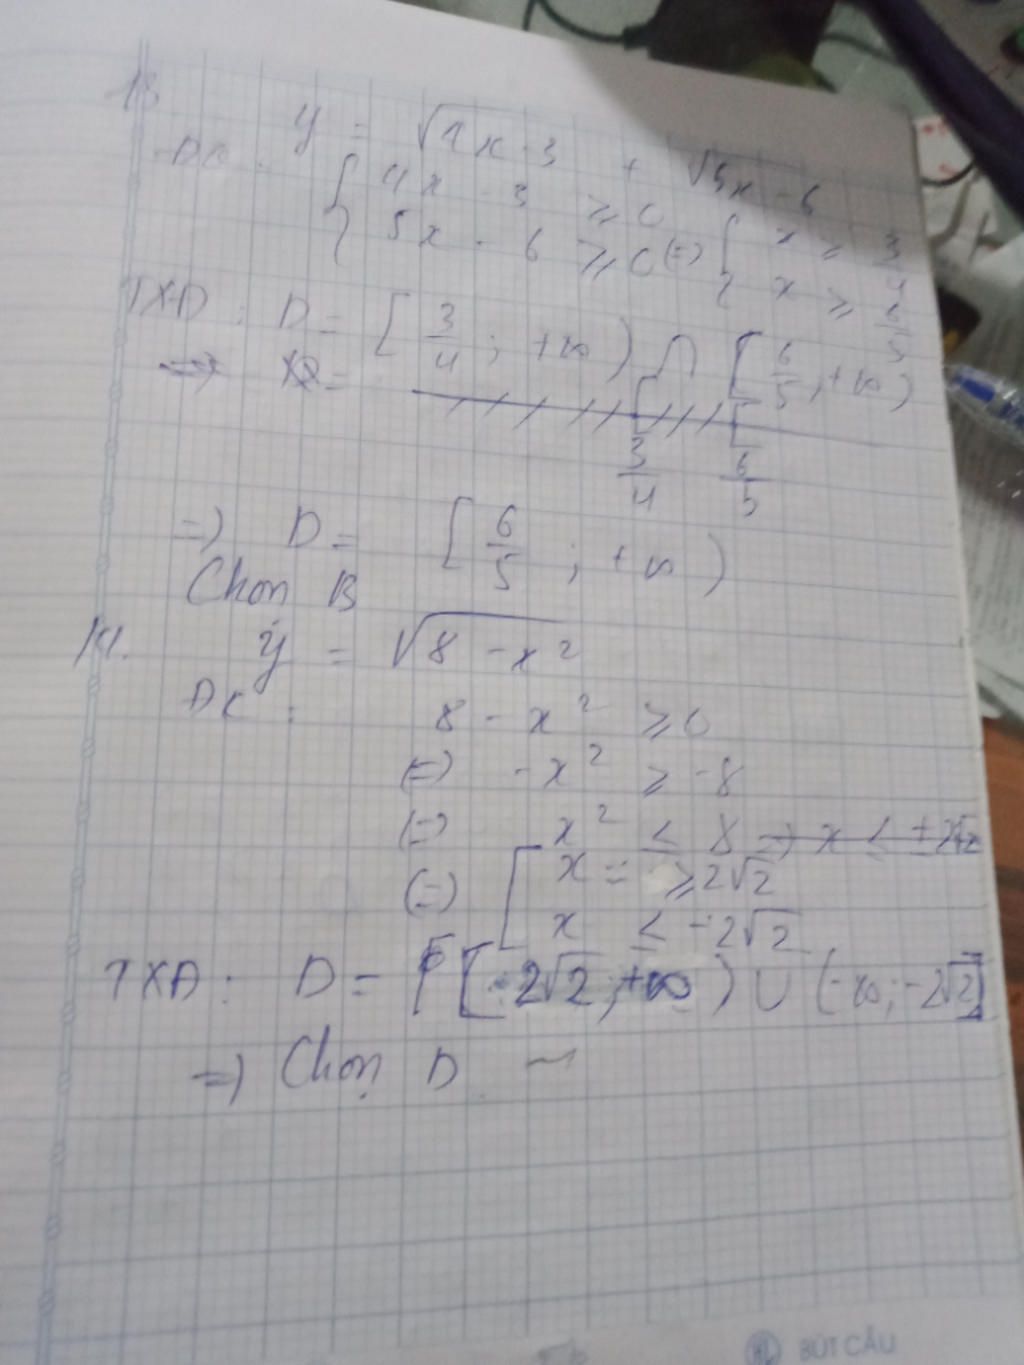 13
y = √4x-3 + √5x-6
ĐK: { 4x - 3 ≥ 0
5x - 6 ≥ 0 (=) { x ≥ 3/4
x ≥ 6/5
TXĐ: D = [3/4; +∞) ∩ [6/5; +∞)
=)
3/4 6/5
=) D = [6/5; +∞)
Chọn B
14. y = √8-x²
ĐK: 8 - x² ≥ 0
(=) -x² ≥ -8
(=) x² ≤ 8
(=) [ x = ≥ 2√2
x ≤ -2√2
TXĐ: D = [2√2; +∞) ∪ (-∞; -2√2]
=) Chọn D
BÚT CÂU